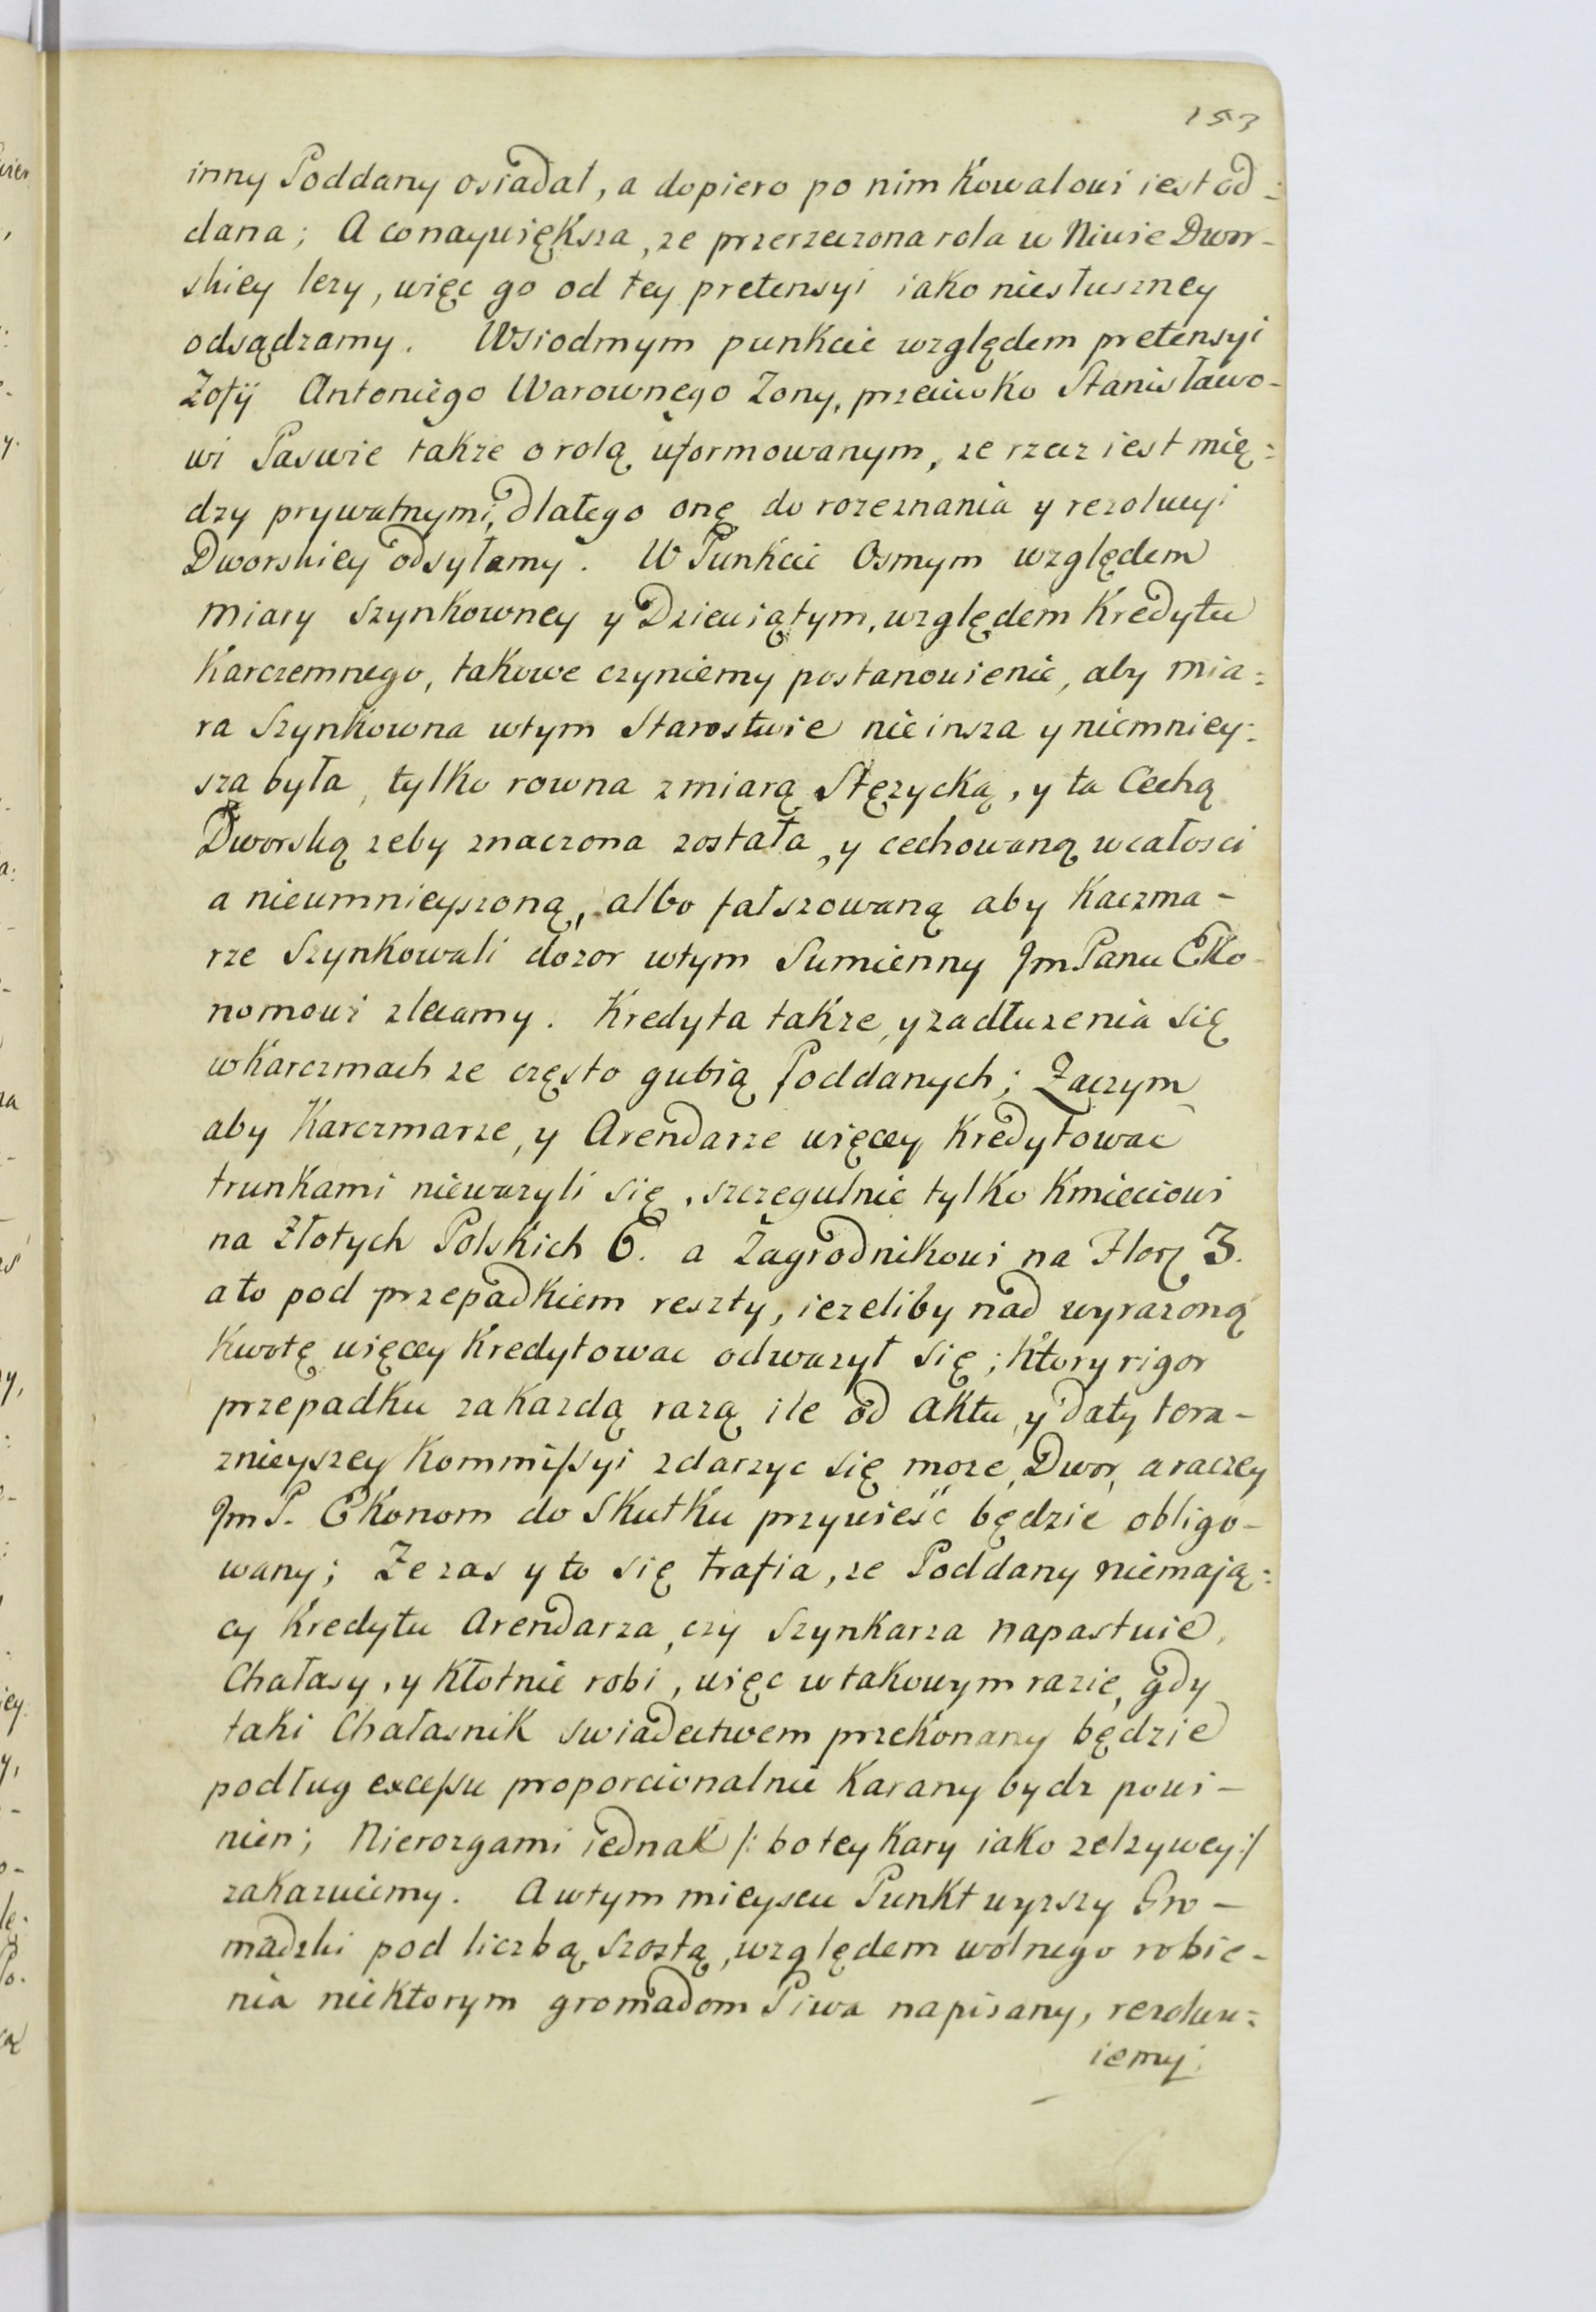 153
inny Poddany osiadał, a dopiero po nim Kowalowi iest od:
dana; A co naywiększa, ze przerzeczona rola w Niwie Dwor-
skiey lezy, więc go od tey pretensyi iako niesłuszney
odsądzamy. W siodmym punkcie względem pretensyi
Zofÿ Antoniego Warownego Zony, przeciwko Stanisławo-
wi Paswie takze o rolą uformowanym, ze rzecz iest mię:
dzy prywatnymi, dlatego onę do rozeznania y rezolucyi
Dworskiey odsyłamy. W Punkcie Osmym względem
miary szynkowney y Dziewiątym, względem Kredytu
Karczemnego, takowe czyniemy postanowienie, aby mia:
ra Szynkowna w tym Starostwie nie insza y niemniey:
sza była, tylko rowna z miarą Stęzycką, y ta Cechą
Dworską zeby znaczona została, y cechowaną w całosci
a nieumnieyszoną, albo fałszowaną aby Kaczma-
rze Szynkowali dozor w tym Sumienny Jm Panu Eko-
nomowi zlecamy. Kredyta takze, y zadłuzenia się
w Karczmach ze często gubią Poddanych; Zaczym
aby Karczmarze, y Arendarze więcey Kredytowac
trunkami niewazyli się, szczegulnie tylko Kmieciowi
na Złotych Polskich 6. a Zagrodnikowi na Flor 3.
a to pod przepadkiem reszty, iezeliby nad wyrazoną
Kwotę więcey Kredytowac odwazył się; Ktory rigor
przepadku za Kazdą razą ile od Aktu y daty tera-
znieyszey Kommissyi zdarzyc się moze, Dwor, a raczey
Jm P. Ekonom do Skutku przywieść będzie obligo-
wany; Ze zas y to się trafia, ze Poddany niemają:
cy Kredytu Arendarza, czy Szynkarza napastuie,
Chałasy, y Kłotnie robi, więc w takowym razie, gdy
taki Chałasnik swiadectwem przekonany będzie
podług excessu proporcionalnie Karany bydz powi-
nien; Nierozgami iednak /: bo tey Kary iako zelzywey :/
zakazuiemy. A w tym mieyscu Punkt wyzszy Gro-
madzki pod liczbą szostą, względem wolnego robie-
nia niektorym gromadom Piwa napisany, rezolwu:
iemy.